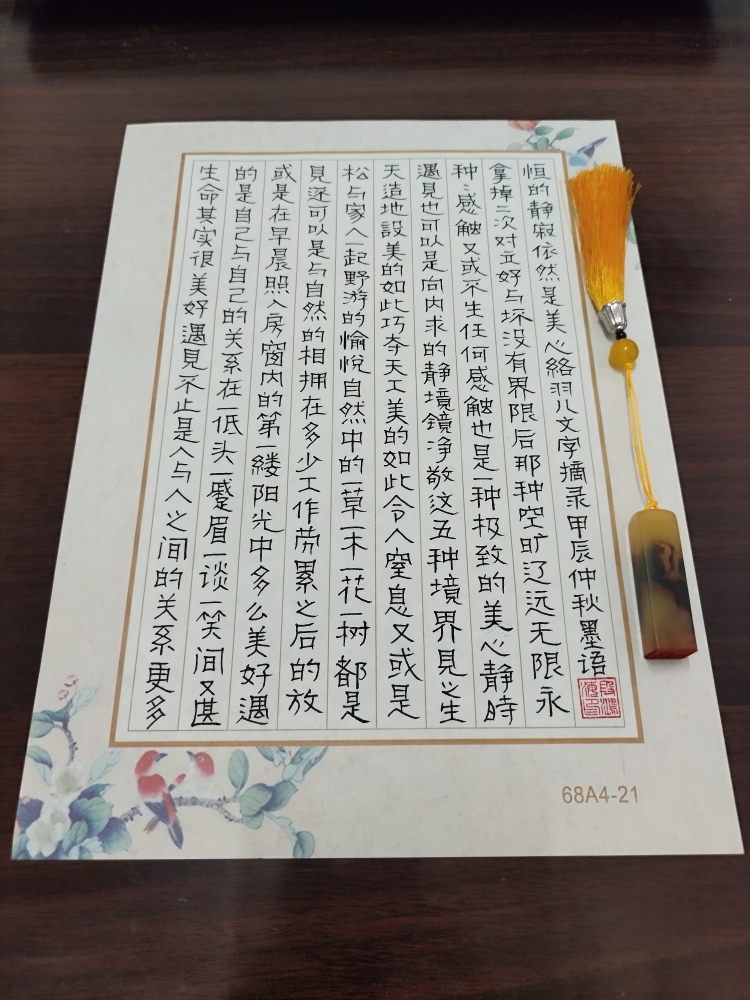 生命其实很美好遇見不止是人与人之间的关系更多
的是自己与自己的关系在一低头一蹙眉一谈一笑间又甚
或是在早晨照入房窗内的第一缕阳光中多么美好遇
見还可以是与自然的相拥在多少工作劳累之后的放
松与家人一起野游的愉悦自然中的一草一木一花一树都是
天造地設美的如此巧夺天工美的如此令人窒息又或是
遇見也可以是向内求的静境鏡净敬这五种境界見之生
种々感触又或不生任何感触也是一种极致的美心静時
拿掉二次对立好与坏没有界限后那种空旷辽远无限永
恒的静寂依然是美心絡羽八文字摘录甲辰仲秋墨语
68A4-21